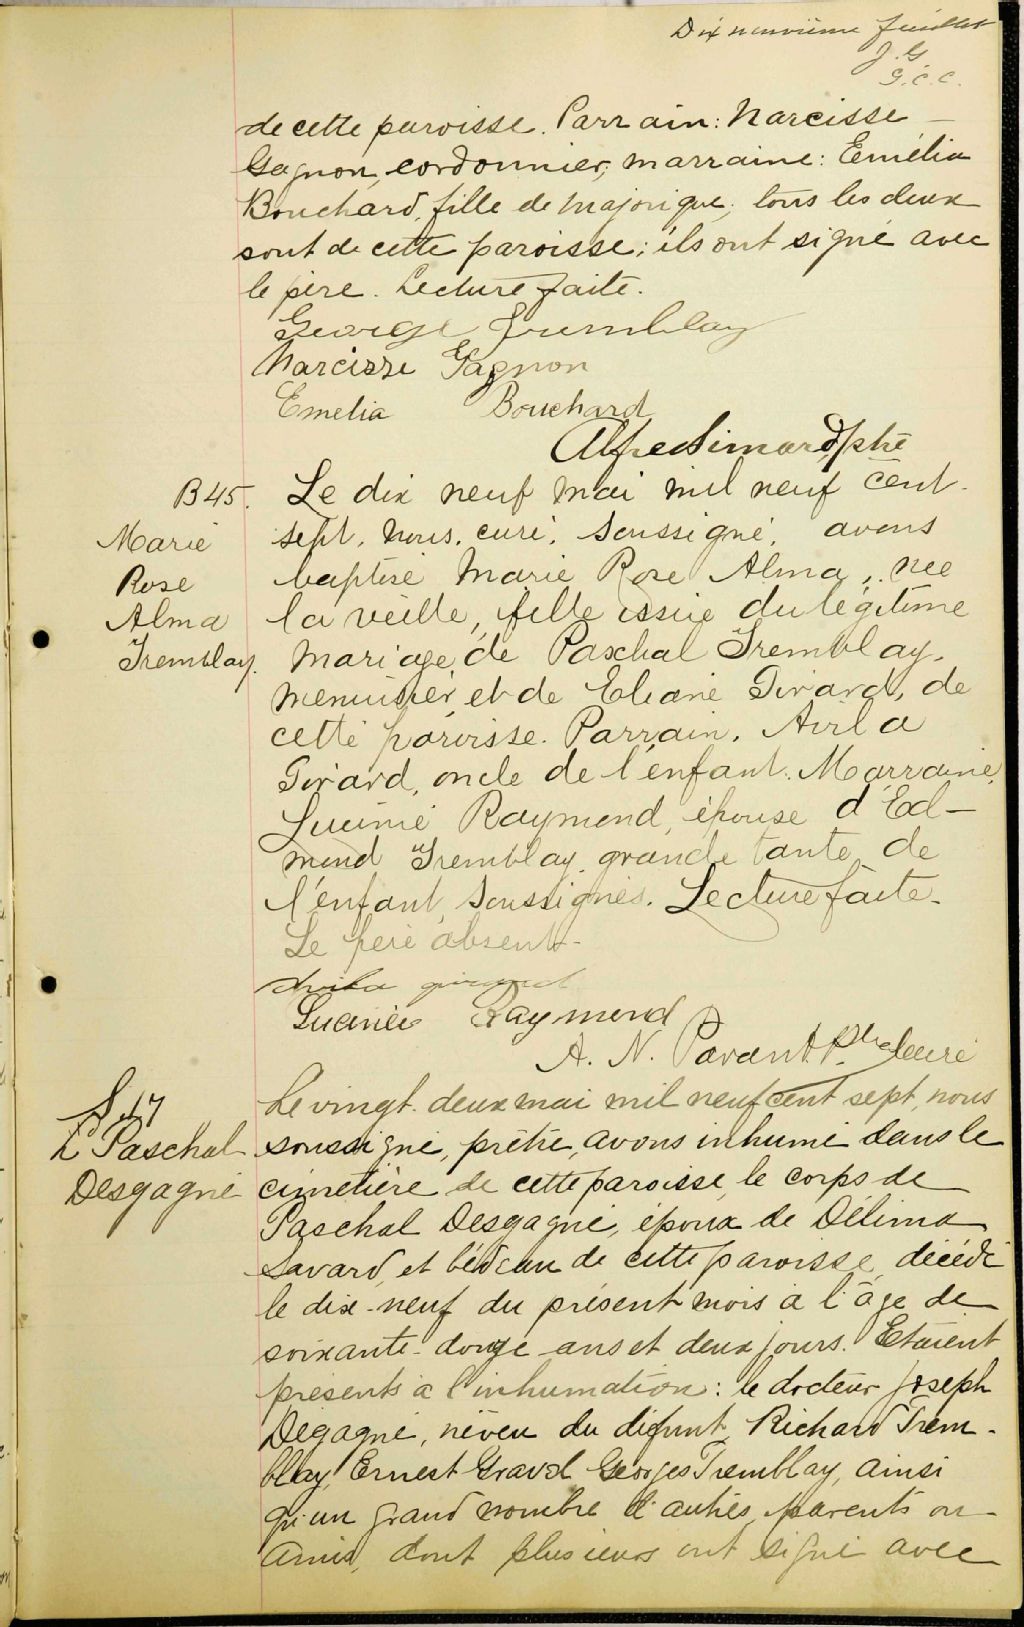 Dix neuvième feuillet
J. G.
G. C. C.
de cette paroisse. Parrain: Narcisse
Gagnon, cordonnier, marraine: Emélia
Bouchard, fille de Majorique; tous les deux
sont de cette paroisse; ils ont signé avec
le père. Lecture faite.
George Tremblay
Narcisse Gagnon
Emelia Bouchard
Alfred Simard, ptre
B 45.
Marie
Rose
Alma
Tremblay.
Le dix neuf Mai mil neuf cent
sept, nous, curé, soussigné, avons
baptisé Marie Rose Alma, née
la veille, fille issue du légitime
mariage de Paschal Tremblay,
menuisier, et de Eliane Girard, de
cette paroisse. Parrain, Avila
Girard, oncle de l'enfant. Marraine,
Lucinie Raymond, épouse d'Ed-
mond Tremblay, grande tante de
l'enfant, soussignés. Lecture faite.
Le père absent.
Avila girard
Raymond
A. N. Parant, Ptre curé
S. 17
Paschal
Desgagné
Le vingt-deux mai mil neuf cent sept, nous
soussigné, prêtre, avons inhumé dans le
cimetière de cette paroisse, le corps de
Paschal Desgagné, époux de Délima
Savard, et bédeau de cette paroisse, décédé
le dix-neuf du présent mois à l'âge de
soixante-douze ans et deux jours. Etaient
présents à l'inhumation: le docteur Joseph
Degagné, neveu du défunt, Richard Trem-
blay, Ernest Gravel Georges Tremblay, ainsi
qu'un grand nombre d'autres, parents ou
amis, dont plusieurs ont signé avec